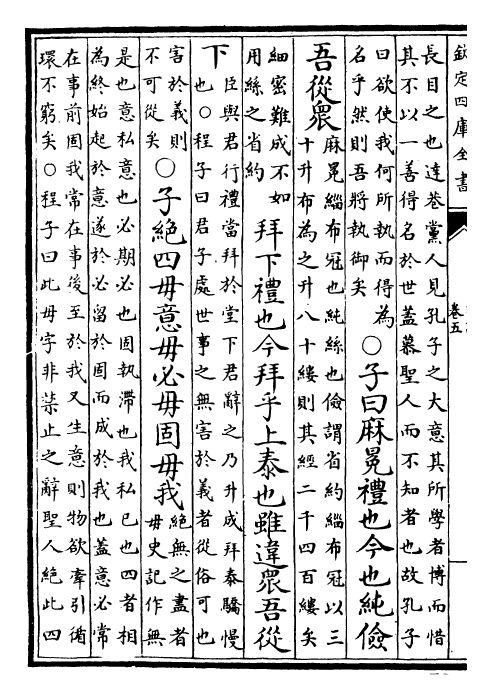 欽定四庫全書
卷五
長目之也達巷黨人見孔子之大意其所學者博而惜
其不以一善得名於世蓋慕聖人而不知者也故孔子
曰欲使我何所執而得為
名乎然則吾將執御矣
○子曰麻冕禮也今也純儉
吾從衆
麻冕緇布冠也純絲也儉謂省約緇布冠以三
十升布為之升八十縷則其經二千四百縷矣
細密難成不如
用絲之省約
拜下禮也今拜乎上泰也雖違衆吾從
下
臣與君行禮當拜於堂下君辭之乃升成拜泰驕慢
也○程子曰君子處世事之無害於義者從俗可也
害於義則
不可從矣
○子絶四毋意毋必毋固毋我
絶無之盡者
毋史記作無
是也意私意也必期必也固執滯也我私已也四者相
為終始起於意遂於必留於固而成於我也蓋意必常
在事前固我常在事後至於我又生意則物欲牽引循
環不窮矣○程子曰此毋字非禁止之辭聖人絶此四